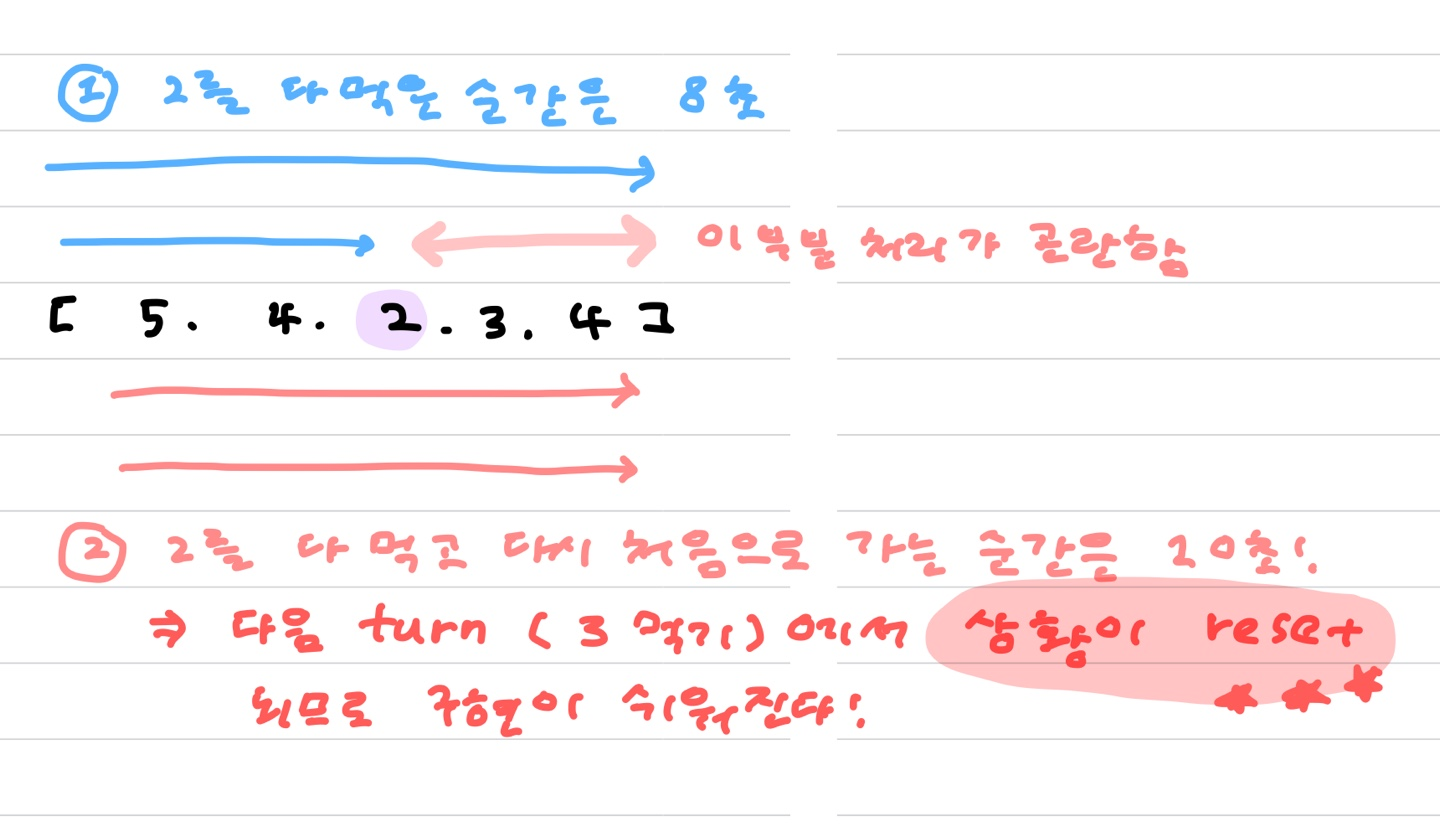 ① 2를 다 먹은 순간은 8초
이 부분 처리가 곤란함
[ 5. 4. 2. 3. 4 ]
② 2를 다 먹고 다시 처음으로 가는 순간은 10초!
⇒ 다음 turn ( 3 먹기 ) 에서 상황이 reset
되므로 구현이 쉬워진다!